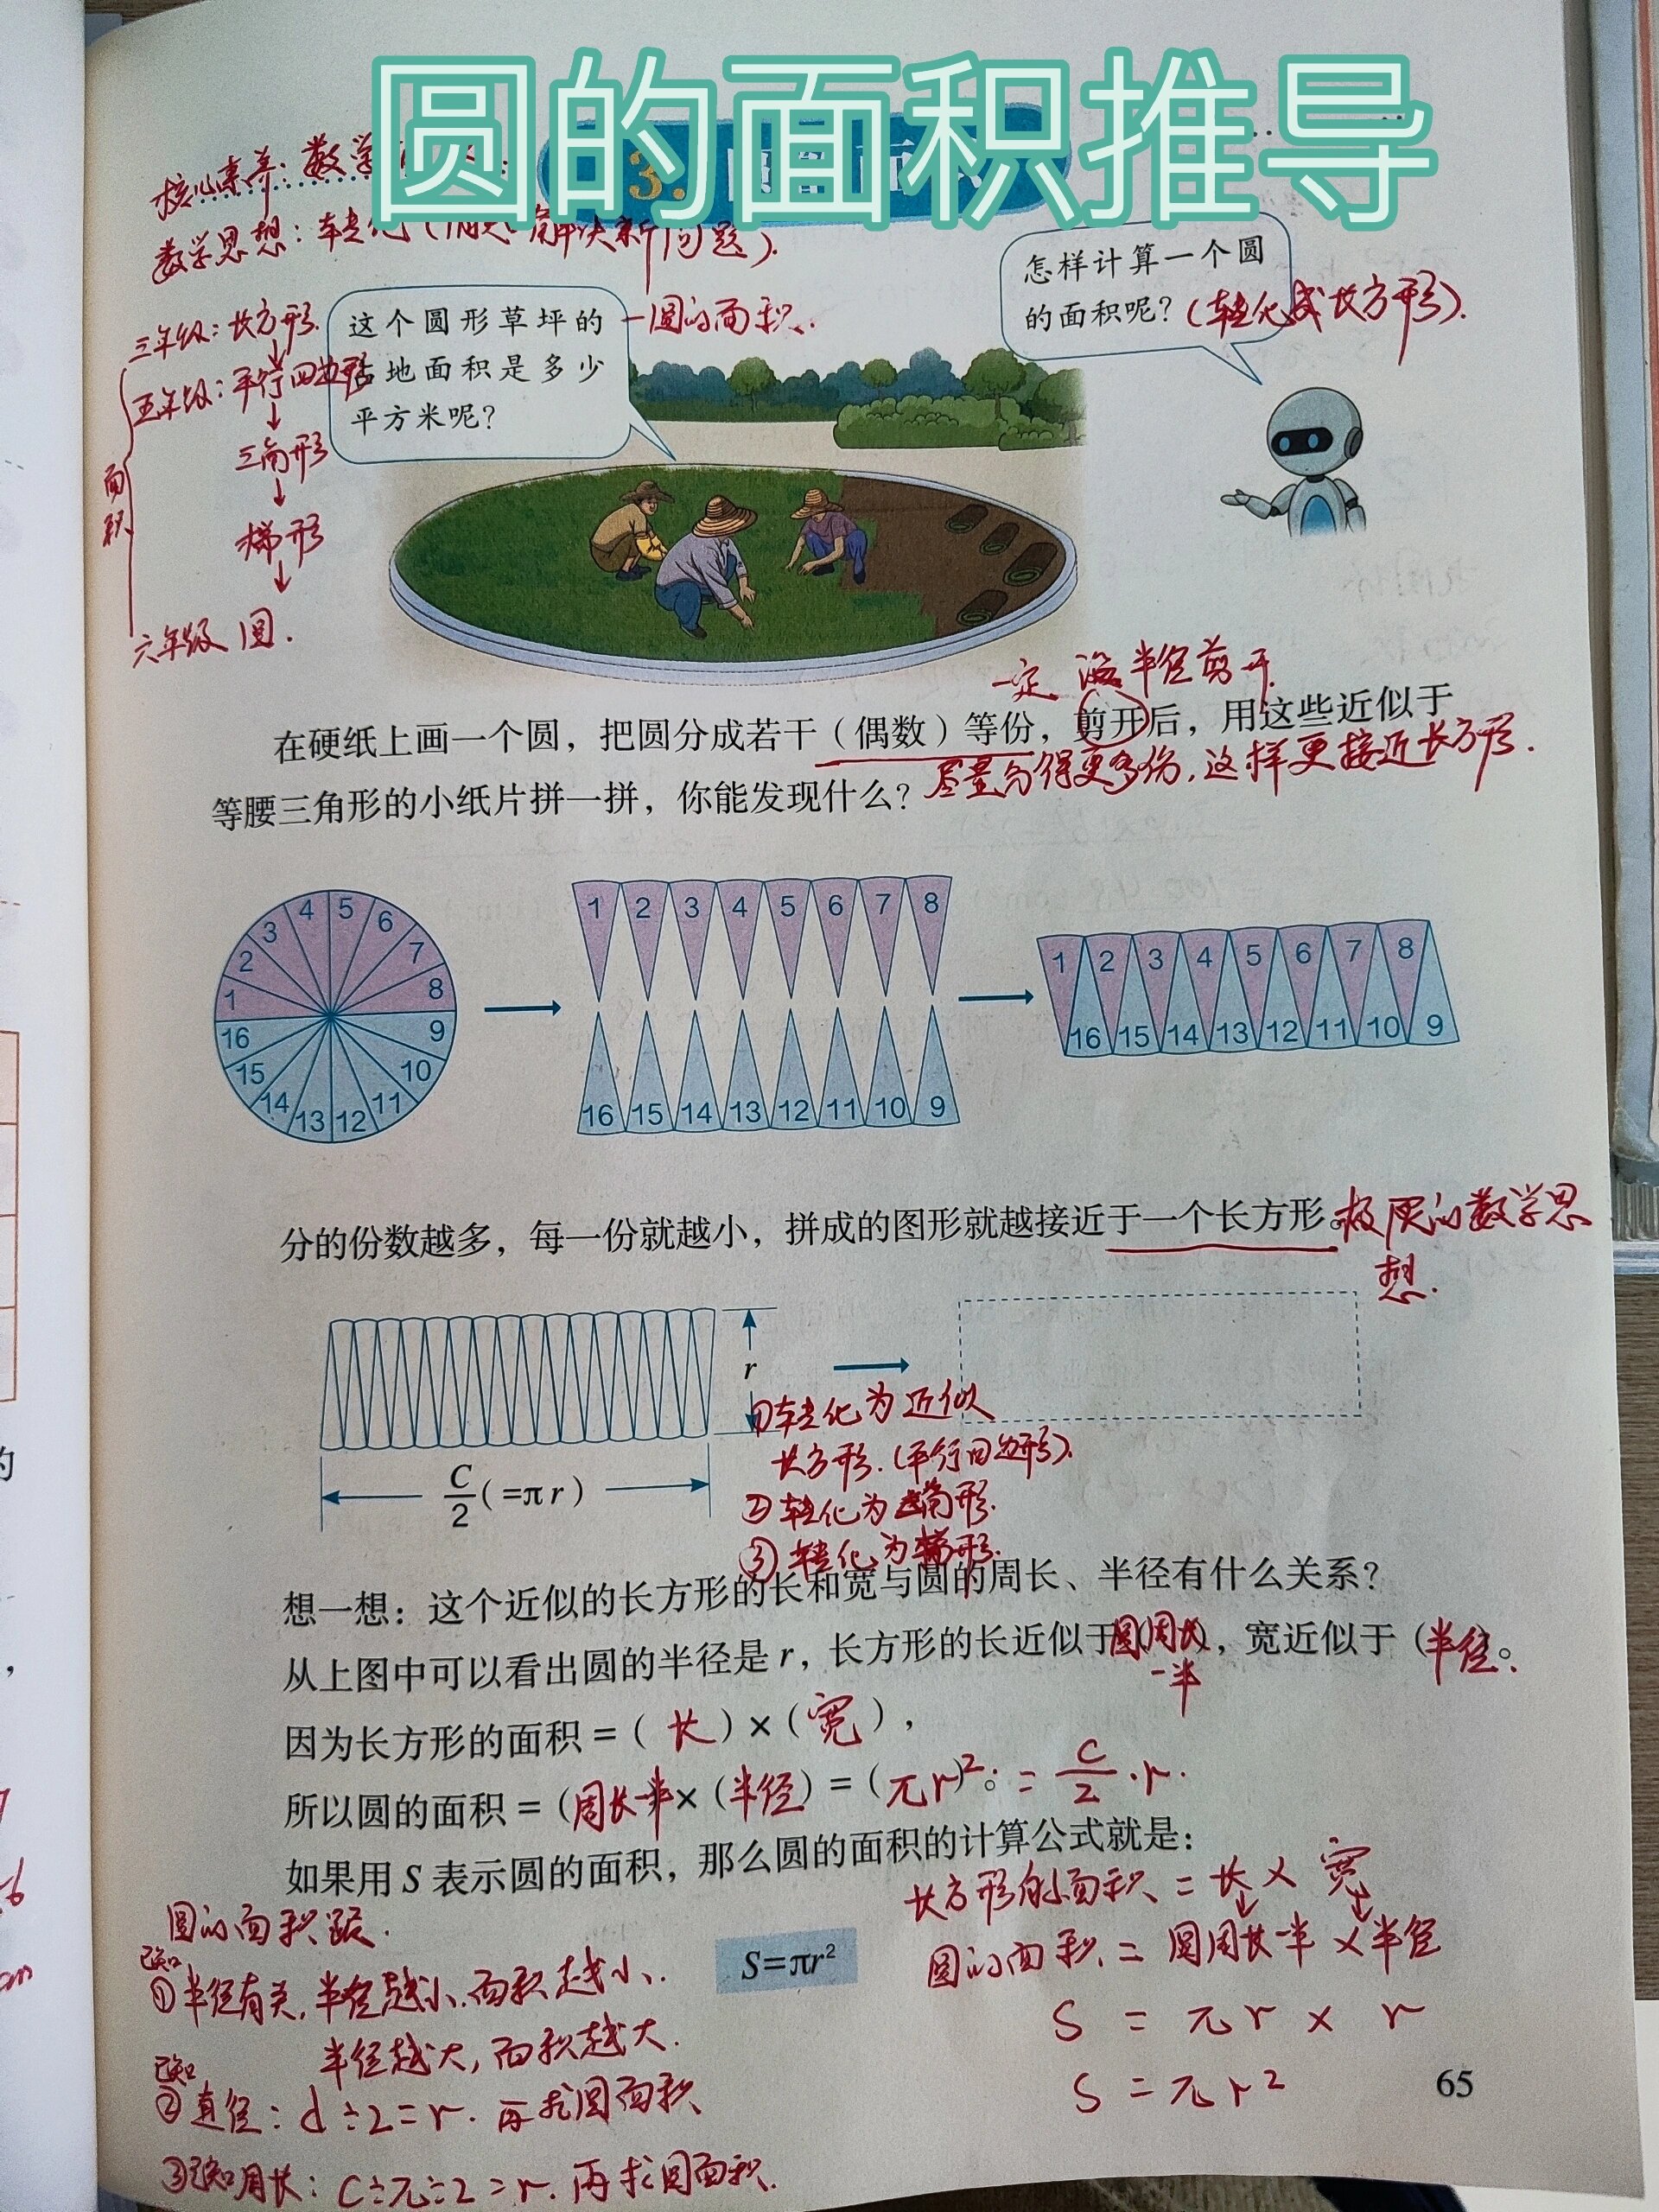 圆的面积推导
核心素养：数学
3.
数学思想：转化（ 解决新问题）.
怎样计算一个圆
的面积呢？（转化成长方形）.
这个圆形草坪的
占地面积是多少
平方米呢？
—圆的面积.
三年级：长方形.
↓
五年级：平行四边形
↓
三角形
↓
梯形
↓
六年级 圆.
面积
一定 沿半径剪开.
在硬纸上画一个圆，把圆分成若干（偶数）等份，剪开后，用这些近似于
等腰三角形的小纸片拼一拼，你能发现什么？尽量分得更多份，这样更接近长方形.
1 2 3 4 5 6 7 8
9 10 11 12 13 14 15 16
1 2 3 4 5 6 7 8
16 15 14 13 12 11 10 9
1 2 3 4 5 6 7 8
16 15 14 13 12 11 10 9
分的份数越多，每一份就越小，拼成的图形就越接近于一个长方形。极限的数学思
想.
r
C/2(=πr)
①转化为近似
长方形.（平行四边形）.
②转化为三角形.
③转化为梯形.
想一想：这个近似的长方形的长和宽与圆的周长、半径有什么关系？
从上图中可以看出圆的半径是 r，长方形的长近似于（圆周长一半），宽近似于（半径）。
因为长方形的面积＝（ 长 ）×（ 宽 ），
所以圆的面积＝（周长一半）×（半径）＝（πr）²。= C/2 · r.
如果用 S 表示圆的面积，那么圆的面积的计算公式就是：
S=πr²
长方形的面积 = 长 × 宽
↓ ↓
圆的面积 = 圆周长一半 × 半径
S = πr × r
S = πr²
圆的面积跟.
已知
①半径有关，半径越小，面积越小.
半径越大，面积越大.
已知
②直径：d÷2=r. 再求圆面积
③已知周长：C÷π÷2=r. 再求圆面积.
65